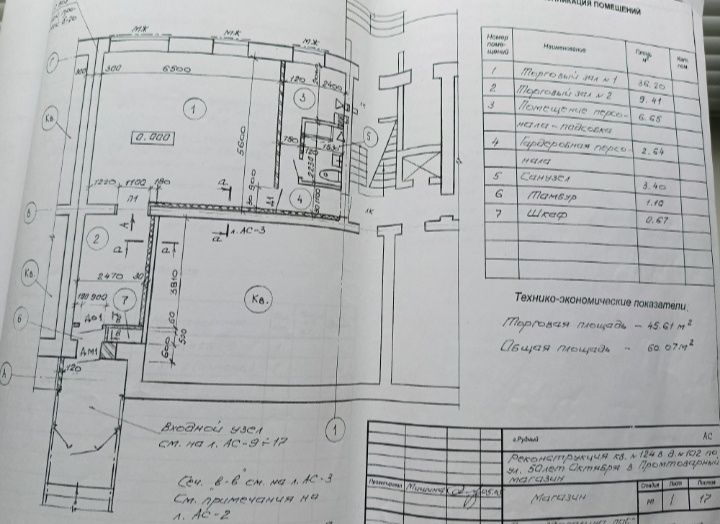 МЖ
МЖ
МЖ
300
300
6500
120
2400
Г
1
3
Кв
0.000
5600
780
5
1220
1100
180
П1
а
Д1
4
В
2
А
а
а
л. АС-3
1К
2470
30
3810
Кв.
Кв.
180
900
7
ДО1
6
ДМ1
600
60
510
А
120
Входной узел
см. на л. АС-9÷17
1
Сеч. "в-в" см. на л. АС-3
См. примечания на
л. АС-2
ПЛИКАЦИЯ ПОМЕЩЕНИЙ
Номер помещений
Наименование
Площ. м²
Кат. пом.
1 Торговый зал №1 36.20
2 Торговый зал №2 9.41
3 Помещение персо- 6.65
нала-подсобка
4 Гардеробная персо- 2.64
нала
5 Санузел 3.40
6 Тамбур 1.10
7 Шкаф 0.67
Технико-экономические показатели.
Торговая площадь – 45.61 м²
Общая площадь – 60.07 м²
г.Рубный АС
Реконструкция кв. №124 в д. №102 по
ул. 50 лет Октября в Промтоварный
магазин
Магазин
Стадия Лист Листов
1 17